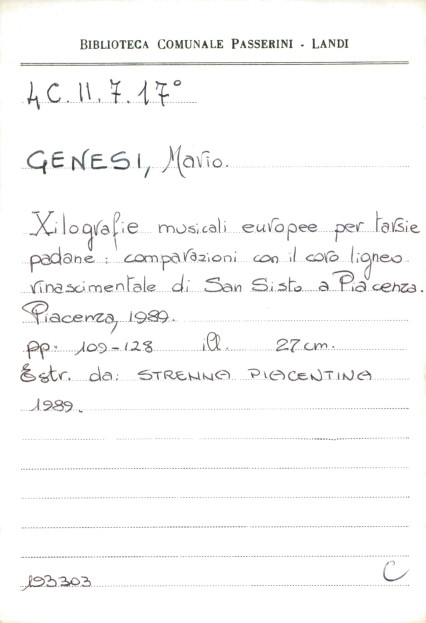 BIBLIOTECA COMUNALE PASSERINI - LANDI
4C.II.7.17°
GENESI, Mario.
Xilografie musicali europee per tarsie
padane : comparazioni con il coro ligneo
rinascimentale di San Sisto a Piacenza.
Piacenza, 1989.
pp. 109-128 ill. 27cm.
Estr. da: STRENNA PIACENTINA
1989.
193303 C